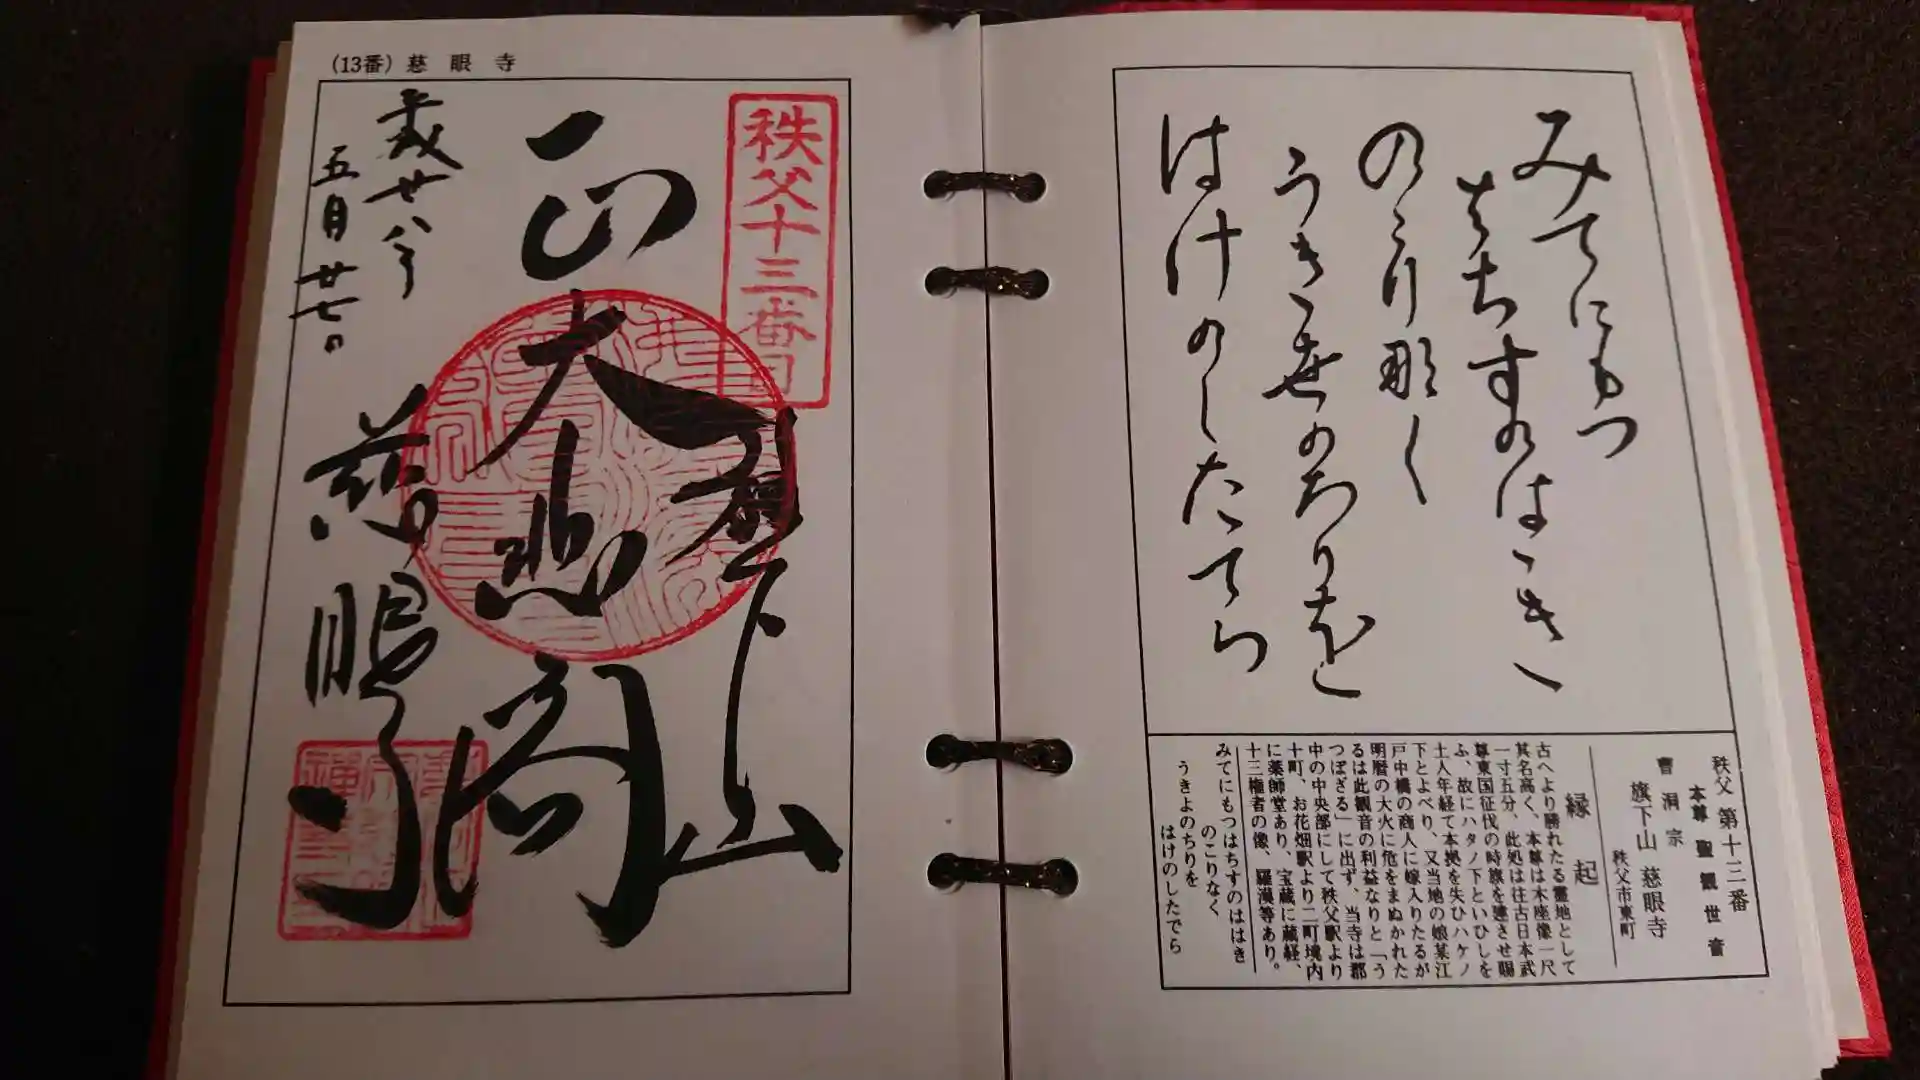 みてにもつ
はちすのはゝき
のこり那く
うきよのちりを
はけのしたてら
秩父 第十三番
本尊 聖観世音
曹洞宗
旗下山 慈眼寺
秩父市東町
縁起
古へより勝れたる霊地として
其名高く、本尊は木座像一尺
一寸五分、此処は往古日本武
尊東国征伐の時旗を建させ賜
ふ、故にハタノ下といひしを
土人年経て本拠を失ひハケノ
下とよべり、又当地の娘某江
戸中橋の商人に嫁入りたるが
明暦の大火に危をまぬかれた
るは此観音の利益なりと「う
つぼざる」に出ず、当寺は郡
中の中央部にして秩父駅より
十町、お花畑駅より二町境内
に薬師堂あり、宝蔵に蔵経、
十三権者の像、羅漢等あり。
みてにもつはちすのははき
のこりなく
うきよのちりを
はけのしたでら
(13番) 慈眼寺
秩父十三番
旗下山
正大悲閣
慈眼寺
五月廿七日